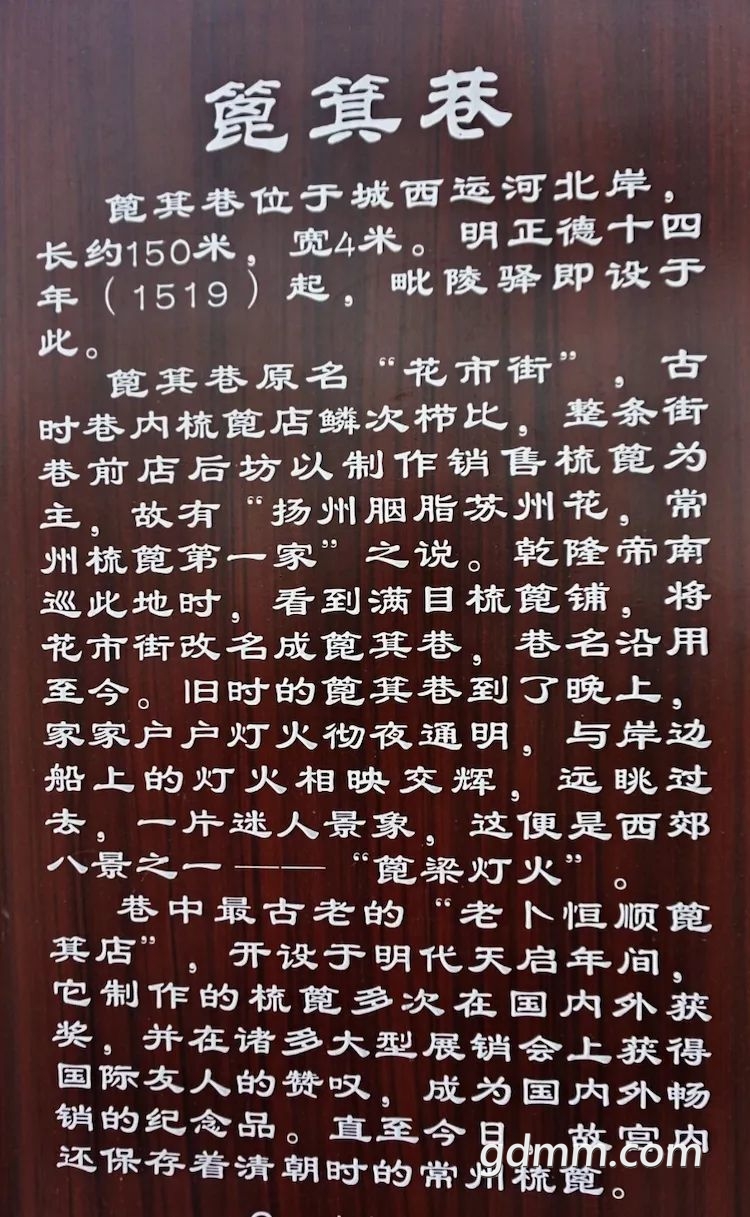 篦箕巷
篦箕巷位于城西运河北岸，
长约150米，宽4米。明正德十四
年（1519）起，毗陵驿即设于
此。
篦箕巷原名“花市街”，古
时巷内梳篦店鳞次栉比，整条街
巷前店后坊以制作销售梳篦为
主，故有“扬州胭脂苏州花，常
州梳篦第一家”之说。乾隆帝南
巡此地时，看到满目梳篦铺，将
花市街改名成篦箕巷，巷名沿用
至今。旧时的篦箕巷到了晚上，
家家户户灯火彻夜通明，与岸边
船上的灯火相映交辉，远眺过
去，一片迷人景象，这便是西郊
八景之一——“篦梁灯火”。
巷中最古老的“老卜恒顺篦
箕店”，开设于明代天启年间，
它制作的梳篦多次在国内外获
奖，并在诸多大型展销会上获得
国际友人的赞叹，成为国内外畅
销的纪念品。直至今日，故宫内
还保存着清朝时的常州梳篦。
gdmm.com